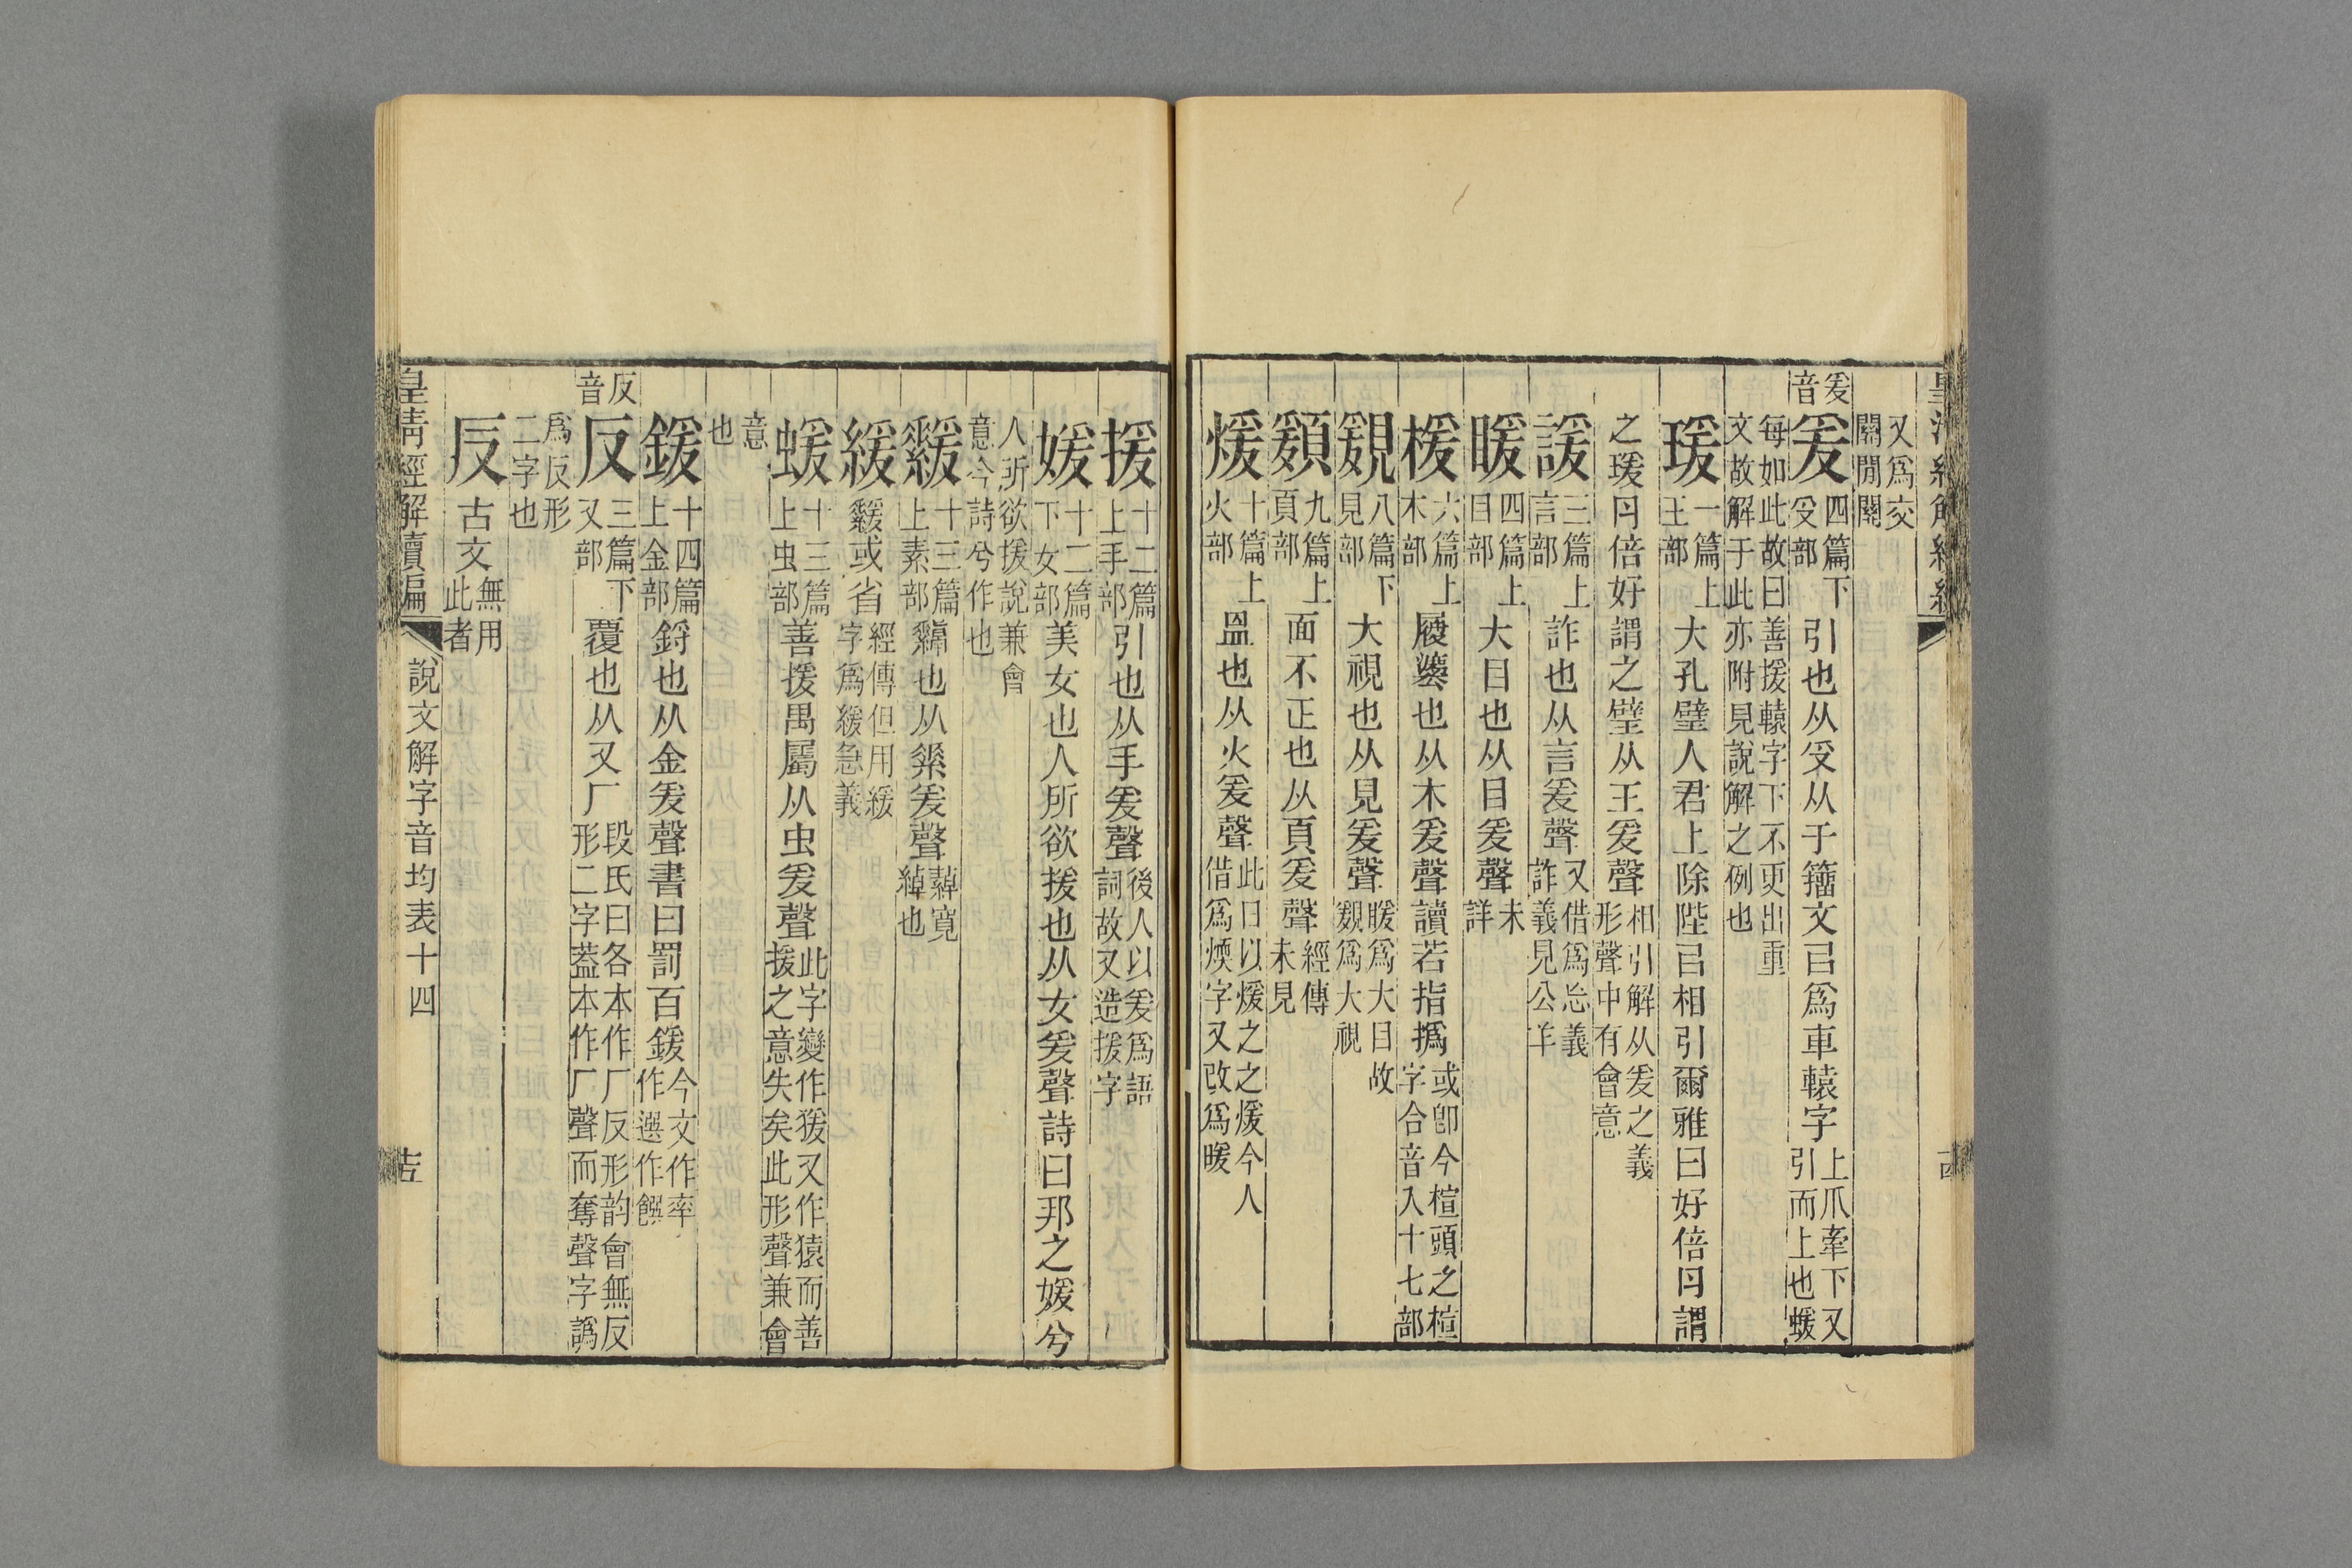 又爲交
關閒關
爰音
爰 四篇下 𠬪部 引也从𠬪从于籒文㠯爲車轅字 上爪牽下又 引而上也蝯
每如此故曰善援轅字下不更出重
文故解于此亦附見說解之例也
瑗 一篇上 王部 大孔璧人君上除陛㠯相引爾雅曰好倍⺆謂
之瑗⺆倍好謂之璧从王爰聲 相引解从爰之義 形聲中有會意
諼 三篇上 言部 詐也从言爰聲 又借爲忘義 詐義見公羊
暖 四篇上 目部 大目也从目爰聲 未詳
楥 六篇上 木部 履也从木爰聲讀若指撝 或卽今楦頭之楦 字合音入十七部
䙪 八篇下 見部 大視也从見爰聲 暖爲大目故 䙪爲大視
䫟 九篇上 頁部 面不正也从頁爰聲 經傳未見
煖 十篇上 火部 𥁕也从火爰聲 此日以煖之之煖今人 借爲煗字又改爲暖
援 十二篇上 手部 引也从手爰聲 後人以爰爲語 詞故又造援字
媛 十二篇下 女部 美女也人所欲援也从女爰聲詩曰邦之媛兮
人所欲援說兼會
意今詩兮作也
𦆓 十三篇上 素部 𦅻也从素爰聲 繛寬 綽也
緩 𦆓或省 經傳但用緩 字爲緩急義
蝯 十三篇上 虫部 善援禺屬从虫爰聲 此字變作猨又作猿而善 援之意失矣此形聲兼會
意
也
鍰 十四篇上 金部 鋝也从金爰聲書曰罰百鍰 今文作率 作選作饌
反音
反 三篇下 又部 覆也从又厂 段氏曰各本作厂反形韵會無反 形二字葢本作厂聲而奪聲字譌
爲反形
二字也
𠬡 古文 無用此者
皇淸經解續編
說文解字音均表十四
十五